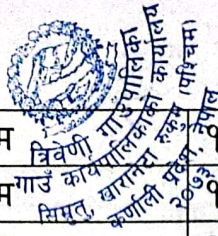 त्रिवेणी गाउँपालिका
गाउँ कार्यपालिकाको कार्यालय
सिमुत, खारानेटा रुकुम पश्चिम
कर्णाली प्रदेश, नेपाल
२०७३
म
म